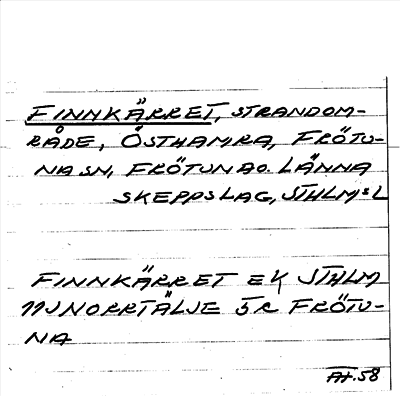 FINNKÄRRET, STRANDOM-
RÅDE, ÖSTHAMRA, FRÖTU-
NA SN, FRÖTUNA O. LÄNNA
SKEPPSLAG, STHLMS L
FINNKÄRRET EK STHLM
11J NORRTÄLJE 5c FRÖTU-
NA
AH.58